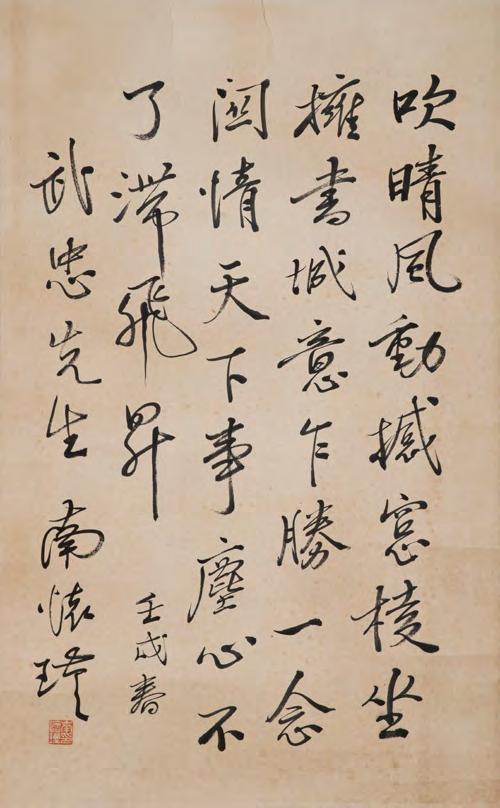 吹晴風動撼窓棱坐
擁書城意乍勝一念
關情天下事塵心不
了滯飛昇 壬戌春
武忠先生 南懷瑾